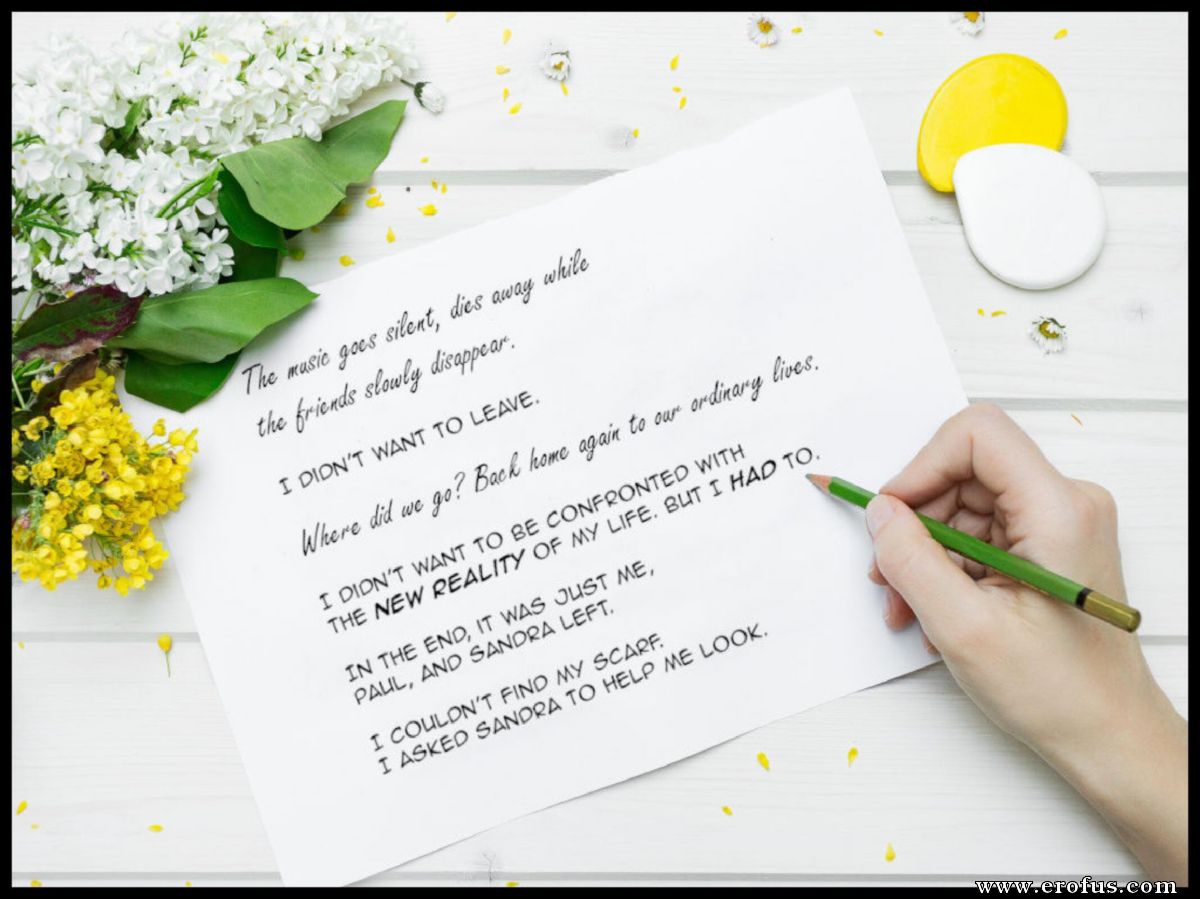 The music goes silent, dies away while
the friends slowly disappear.
I DIDN'T WANT TO LEAVE.
Where did we go? Back home again to our ordinary lives.
I DIDN'T WANT TO BE CONFRONTED WITH
THE NEW REALITY OF MY LIFE. BUT I HAD TO.
IN THE END, IT WAS JUST ME,
PAUL, AND SANDRA LEFT.
I COULDN'T FIND MY SCARF.
I ASKED SANDRA TO HELP ME LOOK.
www.erofus.com